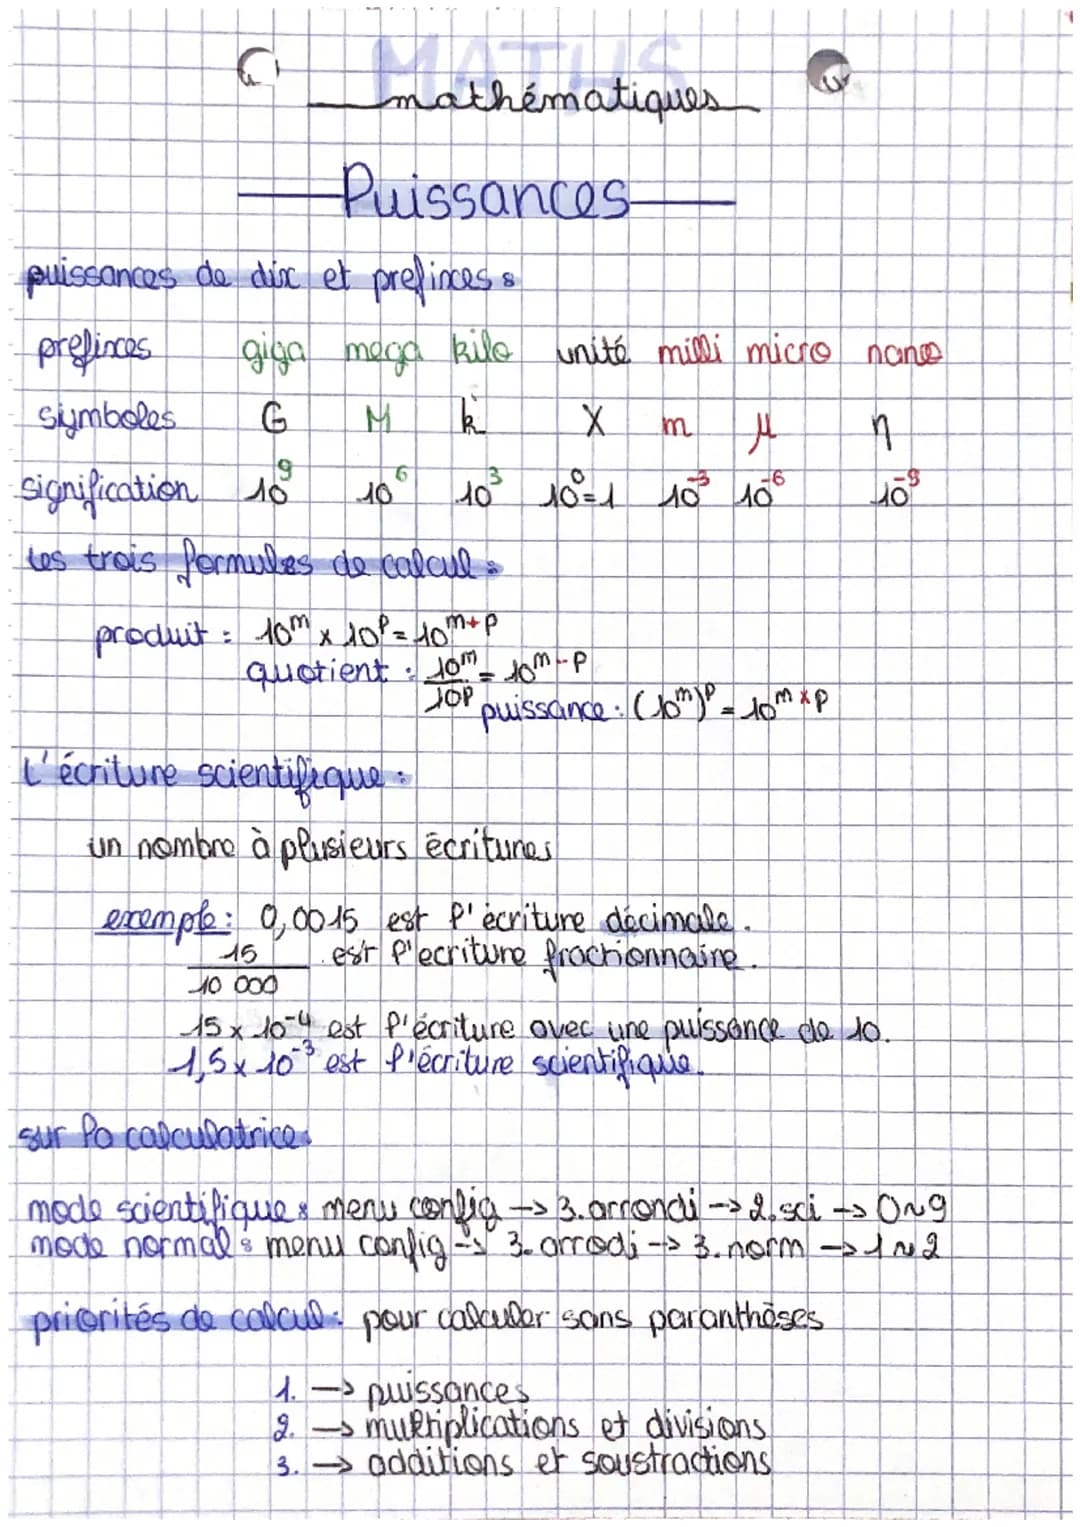 MATHS
mathématiques
Puissances
puissances de dix et prefixes :
prefixes giga mega kilo unité milli micro nano
symboles G M k X m μ η
signification 10⁹ 10⁶ 10³ 10⁰=1 10⁻³ 10⁻⁶ 10⁻⁹
Les trois formules de calcul :
produit : 10^m x 10^p = 10^m+p
quotient : 10^m/10^p = 10^m-p
puissance : (10^m)^p = 10^m x p
L'écriture scientifique :
un nombre à plusieurs écritures
exemple : 0,0015 est l'écriture décimale.
15/10 000 est l'ecriture fractionnaire.
15 x 10⁻⁴ est l'écriture avec une puissance de 10.
1,5 x 10⁻³ est l'écriture scientifique.
sur la calculatrice :
mode scientifique : menu config → 3. arrondi → 2. sci → 0~9
mode normal : menu config → 3. arrodi → 3. norm → 1~2
priorités de calcul : pour calculer sans paranthèses
1. → puissances
2. → multiplications et divisions
3. → additions et soustractions